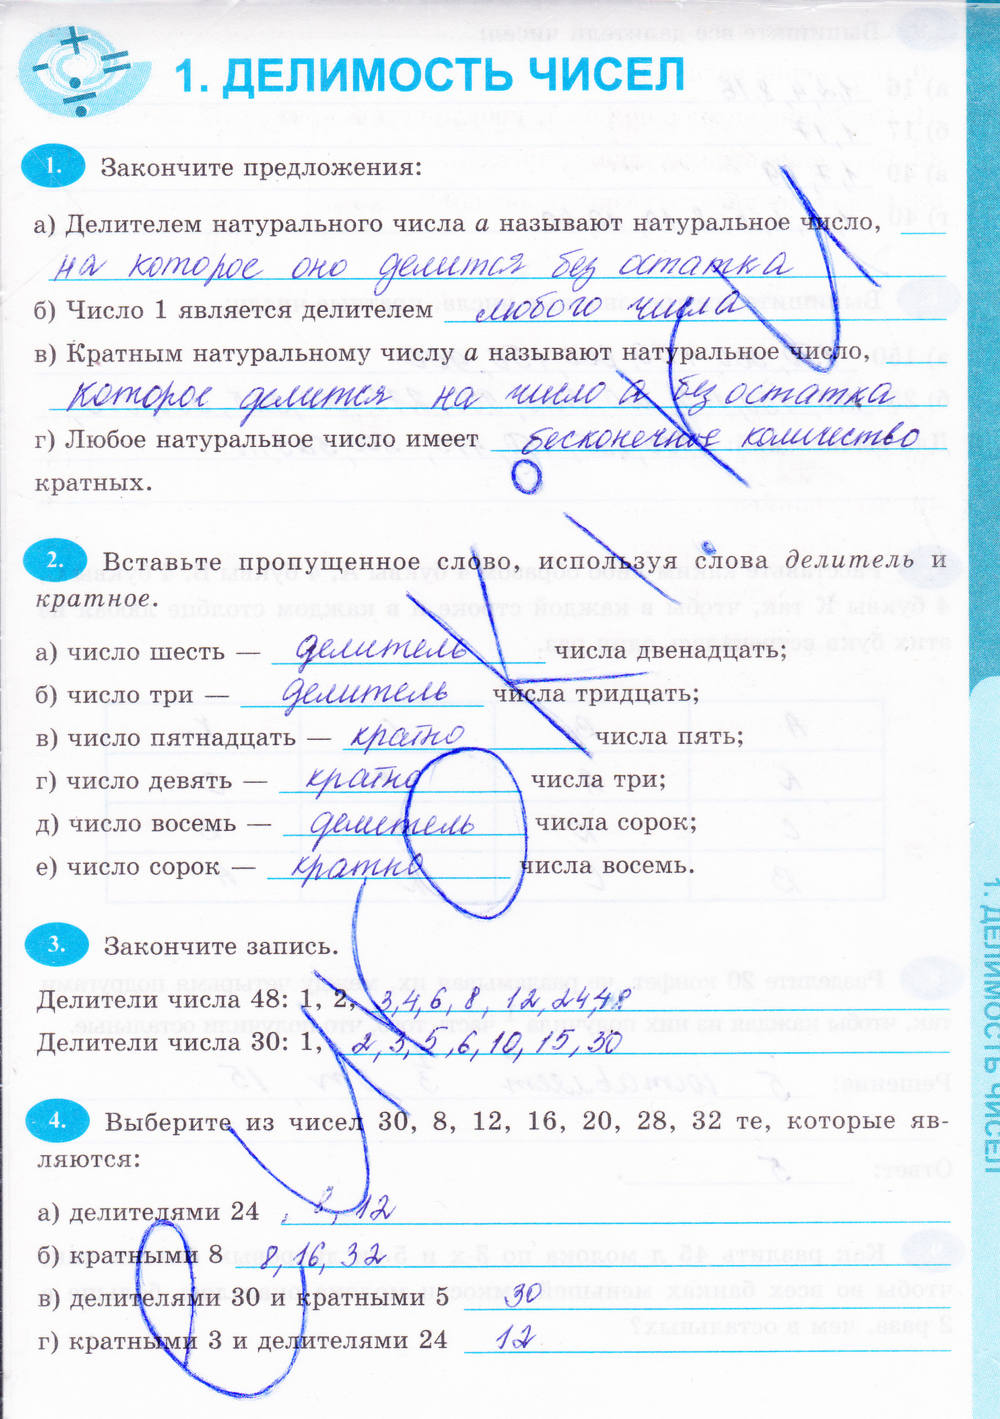 1. ДЕЛИМОСТЬ ЧИСЕЛ
1. Закончите предложения:
а) Делителем натурального числа a называют натуральное число,
на которое оно делится без остатка
б) Число 1 является делителем любого числа
в) Кратным натуральному числу a называют натуральное число,
которое делится на число а без остатка
г) Любое натуральное число имеет бесконечное количество
кратных.
2. Вставьте пропущенное слово, используя слова делитель и
кратное.
а) число шесть — делитель числа двенадцать;
б) число три — делитель числа тридцать;
в) число пятнадцать — кратно числа пять;
г) число девять — кратно числа три;
д) число восемь — делитель числа сорок;
е) число сорок — кратно числа восемь.
3. Закончите запись.
Делители числа 48: 1, 2, 3, 4, 6, 8, 12, 24, 48
Делители числа 30: 1, 2, 3, 5, 6, 10, 15, 30
4. Выберите из чисел 30, 8, 12, 16, 20, 28, 32 те, которые яв-
ляются:
а) делителями 24 8, 12
б) кратными 8 8, 16, 32
в) делителями 30 и кратными 5 30
г) кратными 3 и делителями 24 12